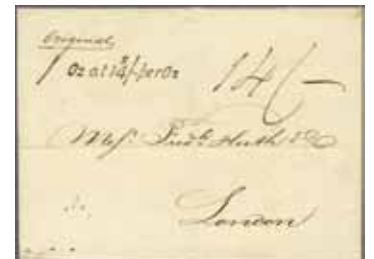 Original
1 Oz at 14/- per Oz 14/-
Messrs. Fredk. Huth & Co
London